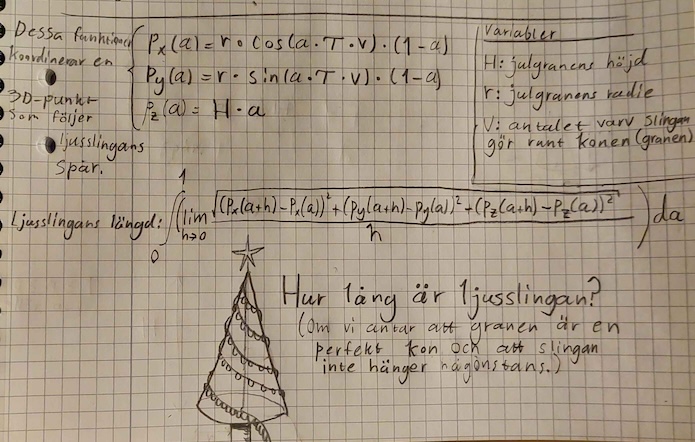 Dessa funktioner
koordinerar en
3D-punkt
som följer
ljusslingans
spår.
Px(a) = r · cos(a · T · v) · (1-a)
Py(a) = r · sin(a · T · v) · (1-a)
Pz(a) = H · a
Variabler
H: julgranens höjd
r: julgranens radie
V: antalet varv slingan
gör runt konen (granen)
Ljusslingans längd: ∫₀¹ (lim h→0 √((Px(a+h) - Px(a))² + (Py(a+h) - Py(a))² + (Pz(a+h) - Pz(a))²) / h) da
Hur lång är ljusslingan?
(Om vi antar att granen är en
perfekt kon och att slingan
inte hänger någonstans.)